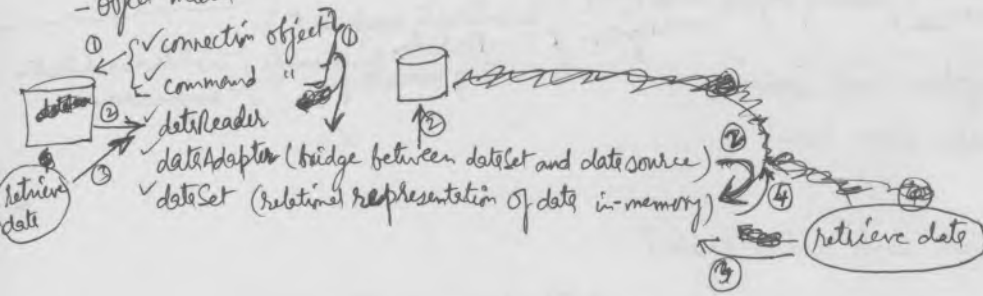 - Object
① { ✓ connection object } ①
✓ command "
② ✓ dataReader
③ ✓ dataAdapter (bridge between dataSet and datasource) ②
✓ dataSet (relational representation of data in-memory) ④
②
retrieve data
retrieve data
③